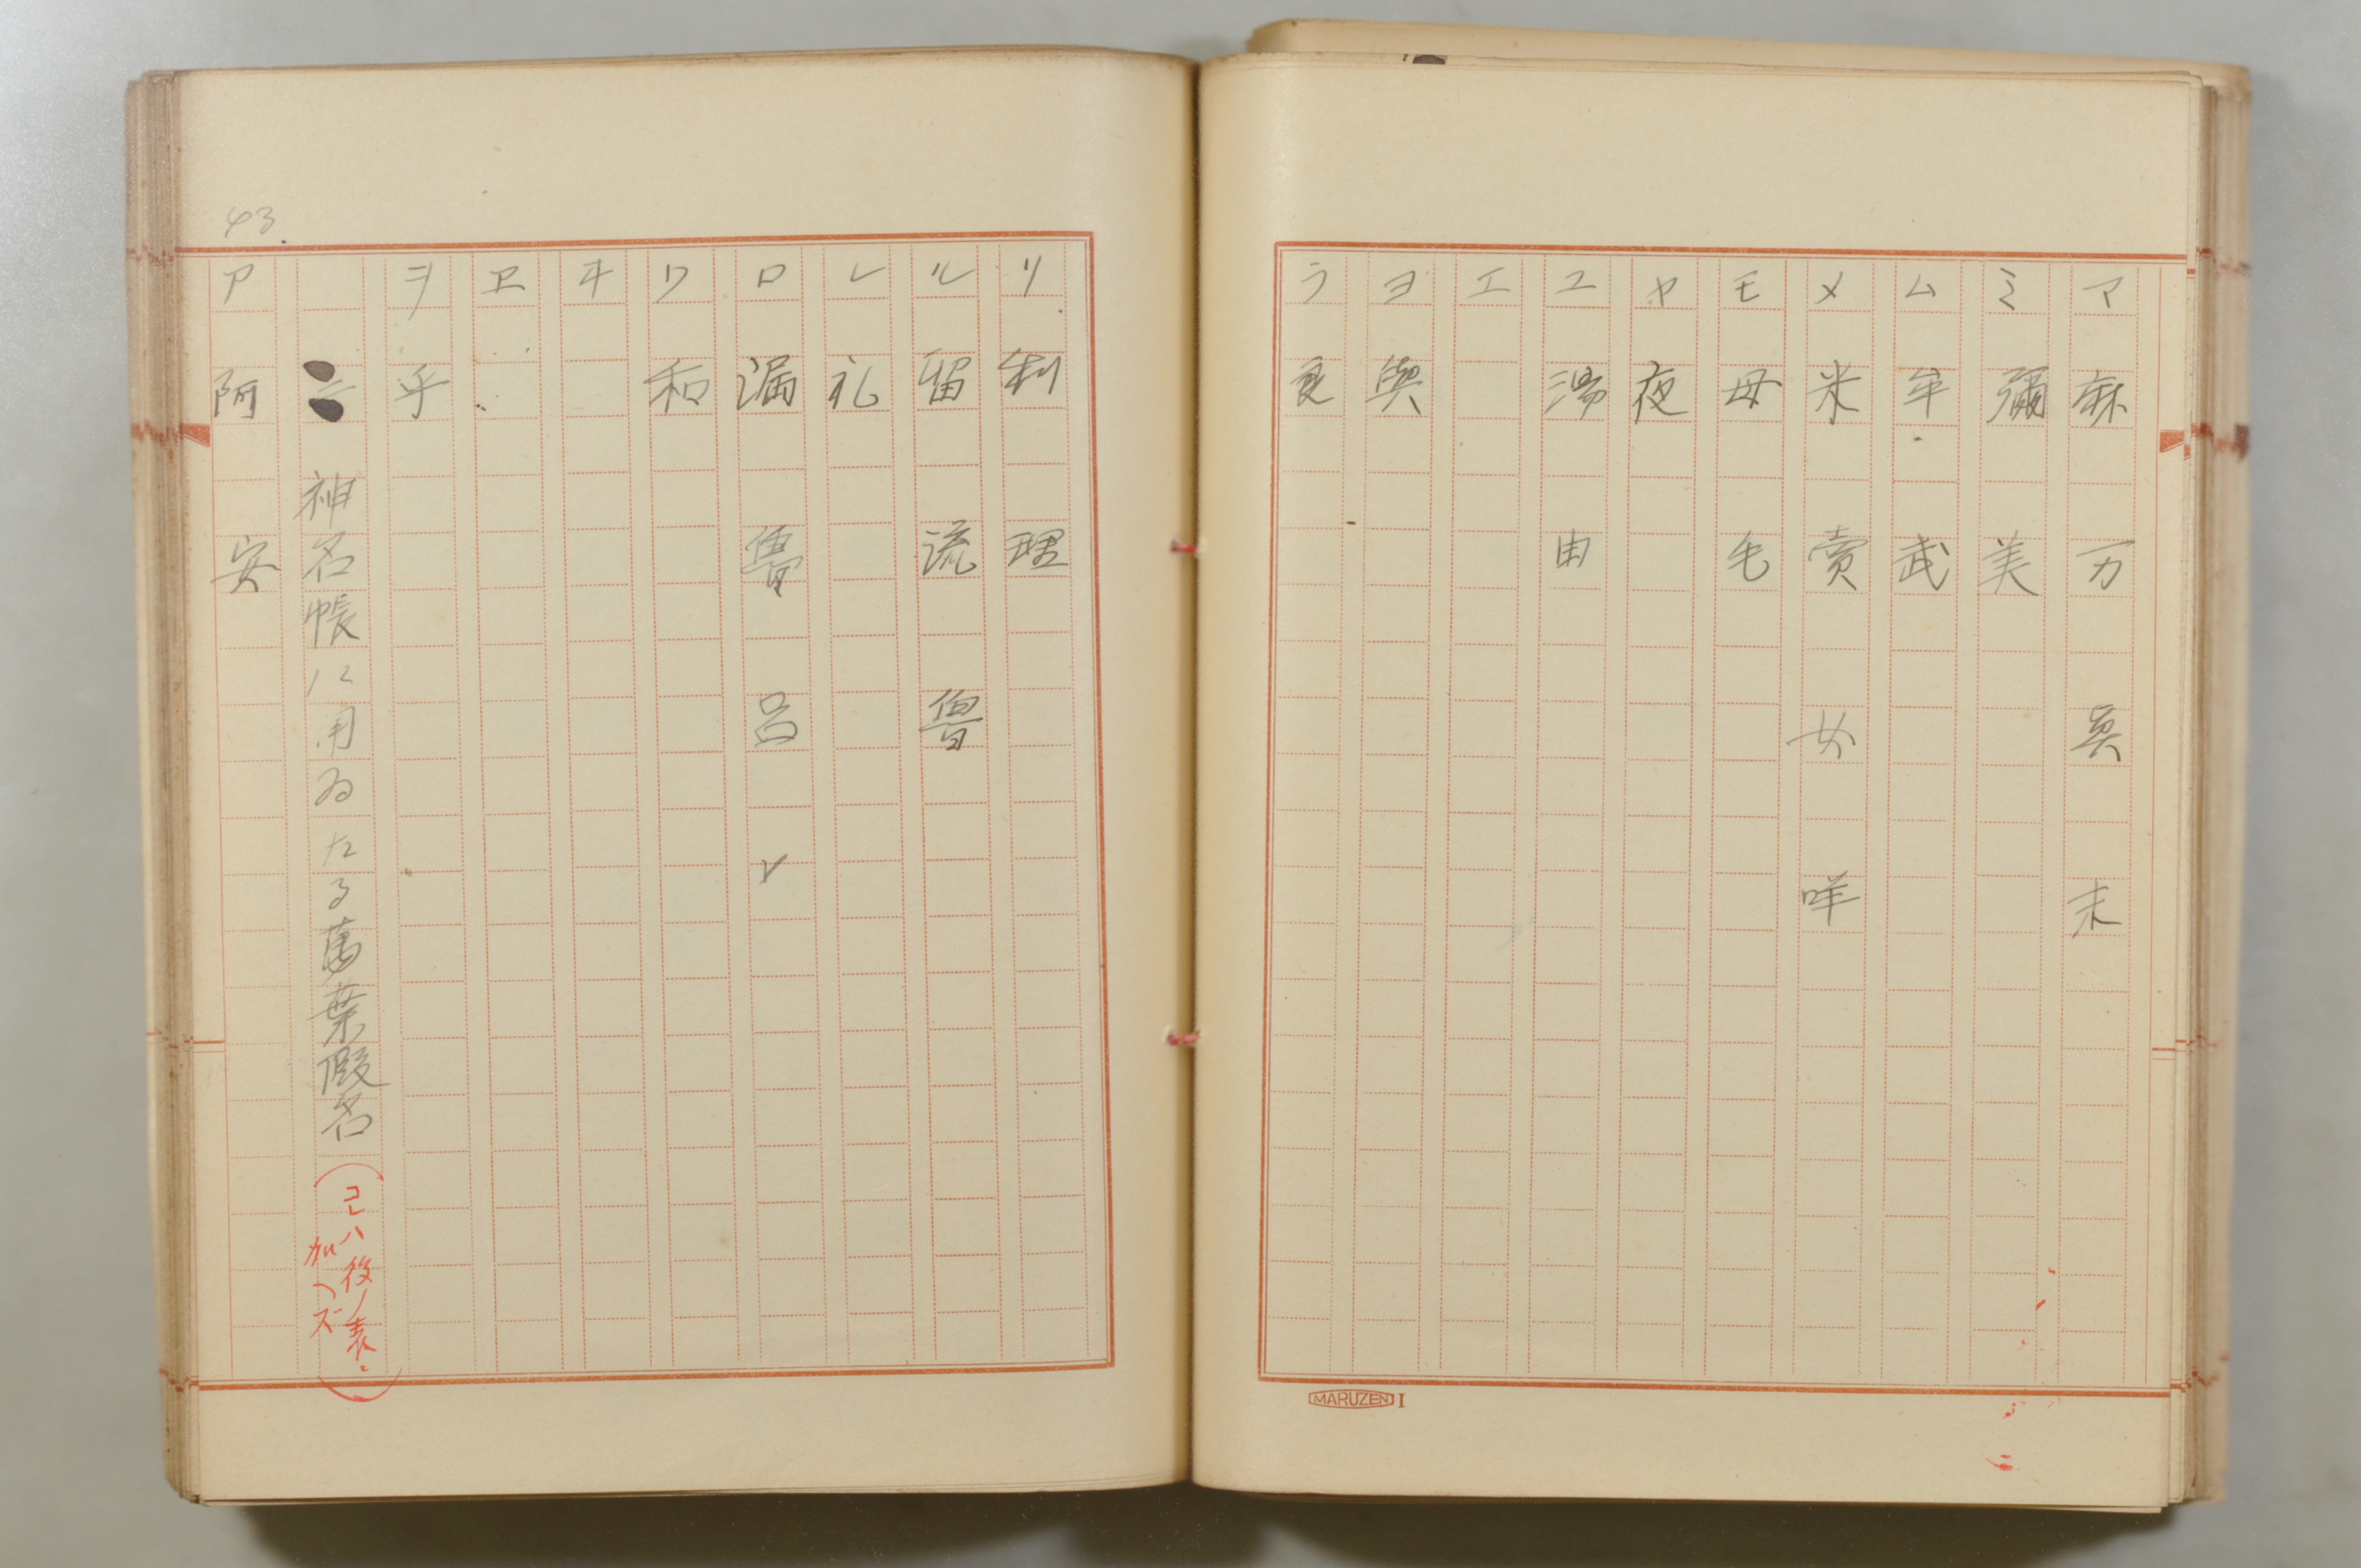 マ 麻 万 眞 末
ミ 彌 美
ム 牟 武
メ 米 賣 女 咩
モ 母 毛
ヤ 夜
ユ 湯 由
エ
ヨ 與
ラ 良
MARUZEN I
43
リ 利 理
ル 留 流 魯
レ 礼
ロ 漏 魯 呂
ワ 和
ヰ
ヱ
ヲ 乎
神名帳に用ゐたる萬葉假名
(コレハ後ノ表ニ
加ヘズ)
ア 阿 安